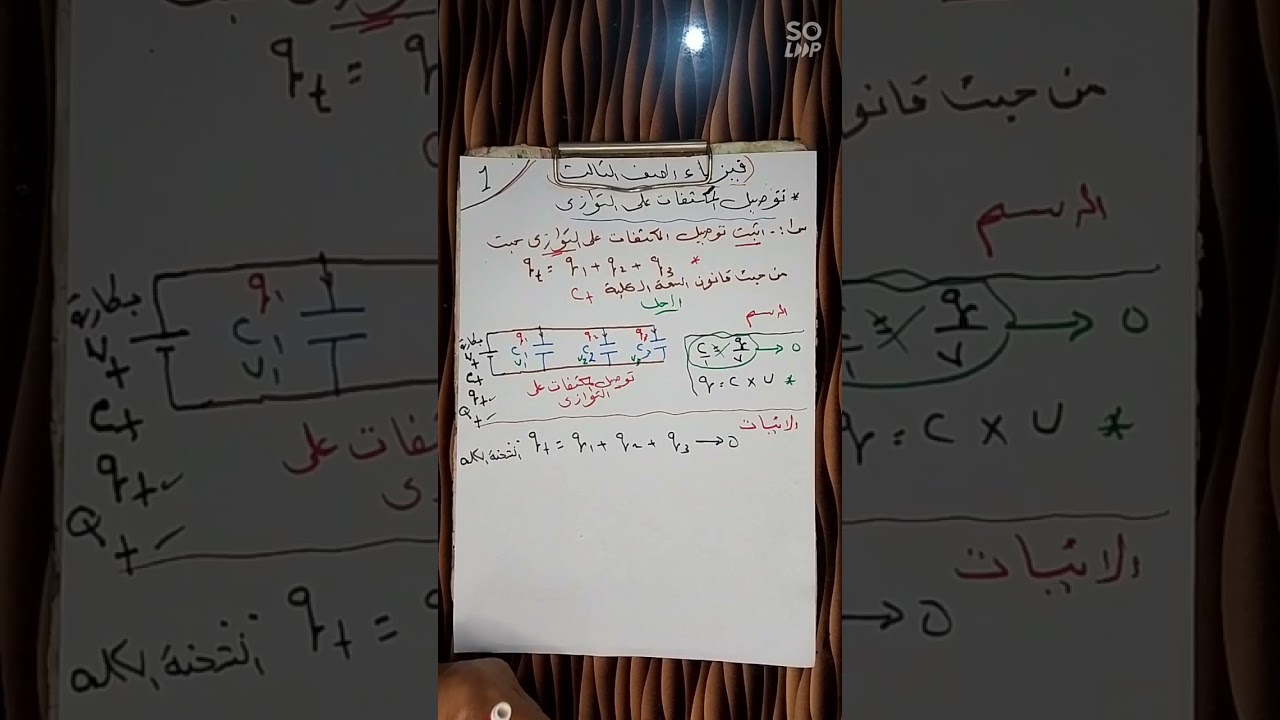 SO
LOOP
1
فيزياء الصف الثالث
* توصيل المكثفات على التوازي
س1:- اثبت توصيل المكثفات على التوازي حيث
qt = q1 + q2 + q3 *
من حيث قانون السعة الكلية Ct
الحل
الرسم
بطارية
Vt
Ct
qt
Qt
q1
C1
V1
q2
C2
V2
q3
C3
V3
توصيل المكثفات على
التوازي
C/1 = q/V → 0
q = C x V *
الاثبات
الشحنة الكلية qt = q1 + q2 + q3 → 0